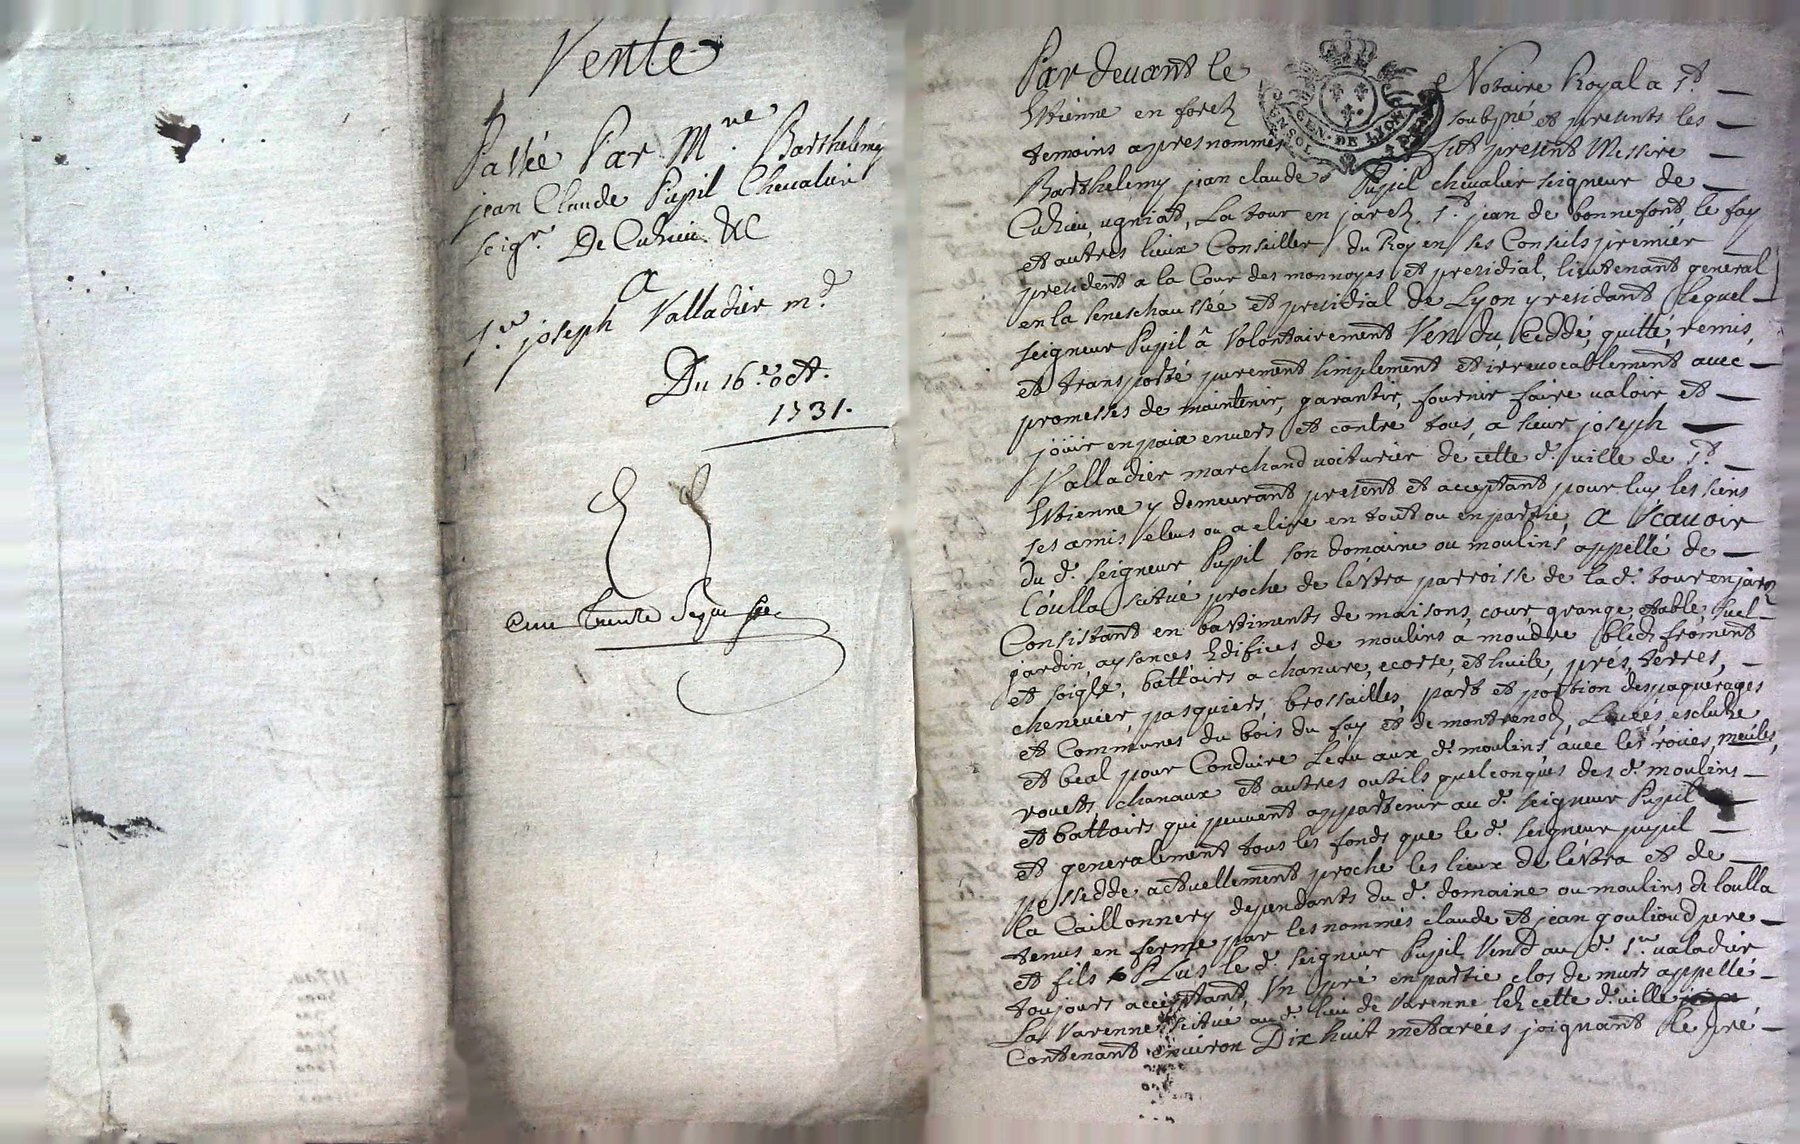 Vente
Passée Par M.re Barthelemy
jean Claude Pupil Chevalier
seig.r De Cuzieu &C
A
S.r joseph Valladier m.d
Du 16.e oct.
1731.
Par devant le Notaire Royal a S.t
Estienne en forez soubsné et presents les
temoins apres nommés fut present Messire
Barthelemy jean claude Pupil chevalier seigneur de
Cuzieu, ugniat, La tour en jarez, S.t jean de bonnefont, le fay
et autres lieux Conseiller du Roy en ses Conseils premier
president a la Cour des monnoyes et presidial, lieutenant general
en la seneschaussée et presidial de Lyon y residant, lequel
seigneur Pupil â volontairement Vendu Ceddé, quitté, remis,
et transporté purement simplement et irrevocablement avec
promesses de maintenir, garantir, fournir faire valoir et
joüir en paix envers et contre tous, a sieur joseph
Valladier marchand voiturier de cette d. ville de S.t
Estienne y demeurant present et acceptant pour luy les siens
ses amis eleus ou a elire en tout ou en partie, A Scavoir
du d. seigneur Pupil son domaine ou moulins appellé de
Coulla situé proche de lestra parroisse de la d. tour en jarez
Consistant en bastiments de maisons, cour, grange, estable,
jardin, aysances Edifices de moulins a moudre bled froment
et soigle, battoirs a chanvre, ecorse, et huile, prés, terres,
chenevier, pasquiers, brossailles, part et portion des paquerages
et Communes du bois du fay et de montrenod, Levées, escluze
et beal pour Conduire Leau aux d. moulins, avec les roües, meules,
rouets, chanaux et autres outils quelconques des d. moulins
et battoirs qui peuvent appartenir au d. seigneur Pupil
et generalement tous les fonds que le d. seigneur pupil
possedde actuellement proche les lieux de lestra et de
la Caillonnery dependants du d. domaine ou moulins de loulla
tenus en ferme par les nommés claude et jean goulioud pere
et fils Plus le d. seigneur Pupil Vend au d. S.r valadier
toujours acceptant, Un pré en partie clos de murs appellé
La Varenne, situé au d. lieu de Varenne lez cette d. ville
Contenant environ Dix huit metarées joignant le pré